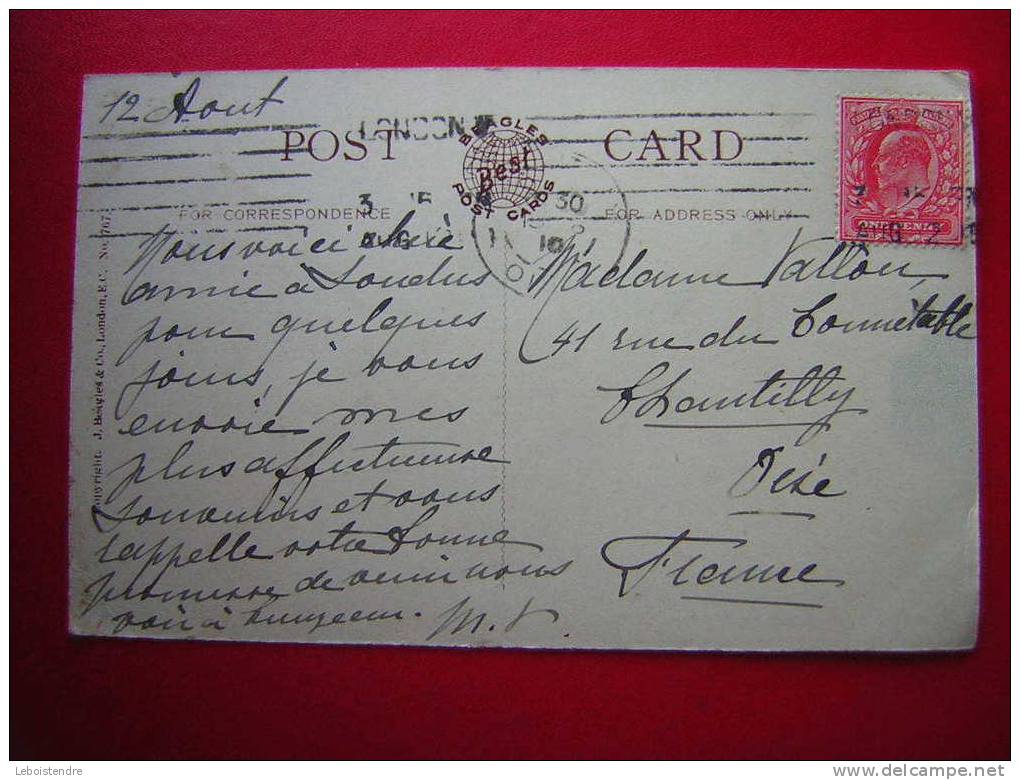 12 Aout
LONDON
POST CARD
BEAGLES
Best
POST CARDS
3 15 30
FOR CORRESPONDENCE
FOR ADDRESS ONLY
AUG
10
ONE PENNY
Nous voici chère
amie à Londres
pour quelques
jours, je vous
envoie mes
plus affectueux
souvenirs et vous
rappelle votre bonne
promesse de venir nous
voir à
M. V.
Madame Vallon,
41 rue du Connétable
Chantilly
Oise
France
Copyright. J. Beagles & Co., London, E.C. No. 767
Leboistendre
DELCAMPE.NET